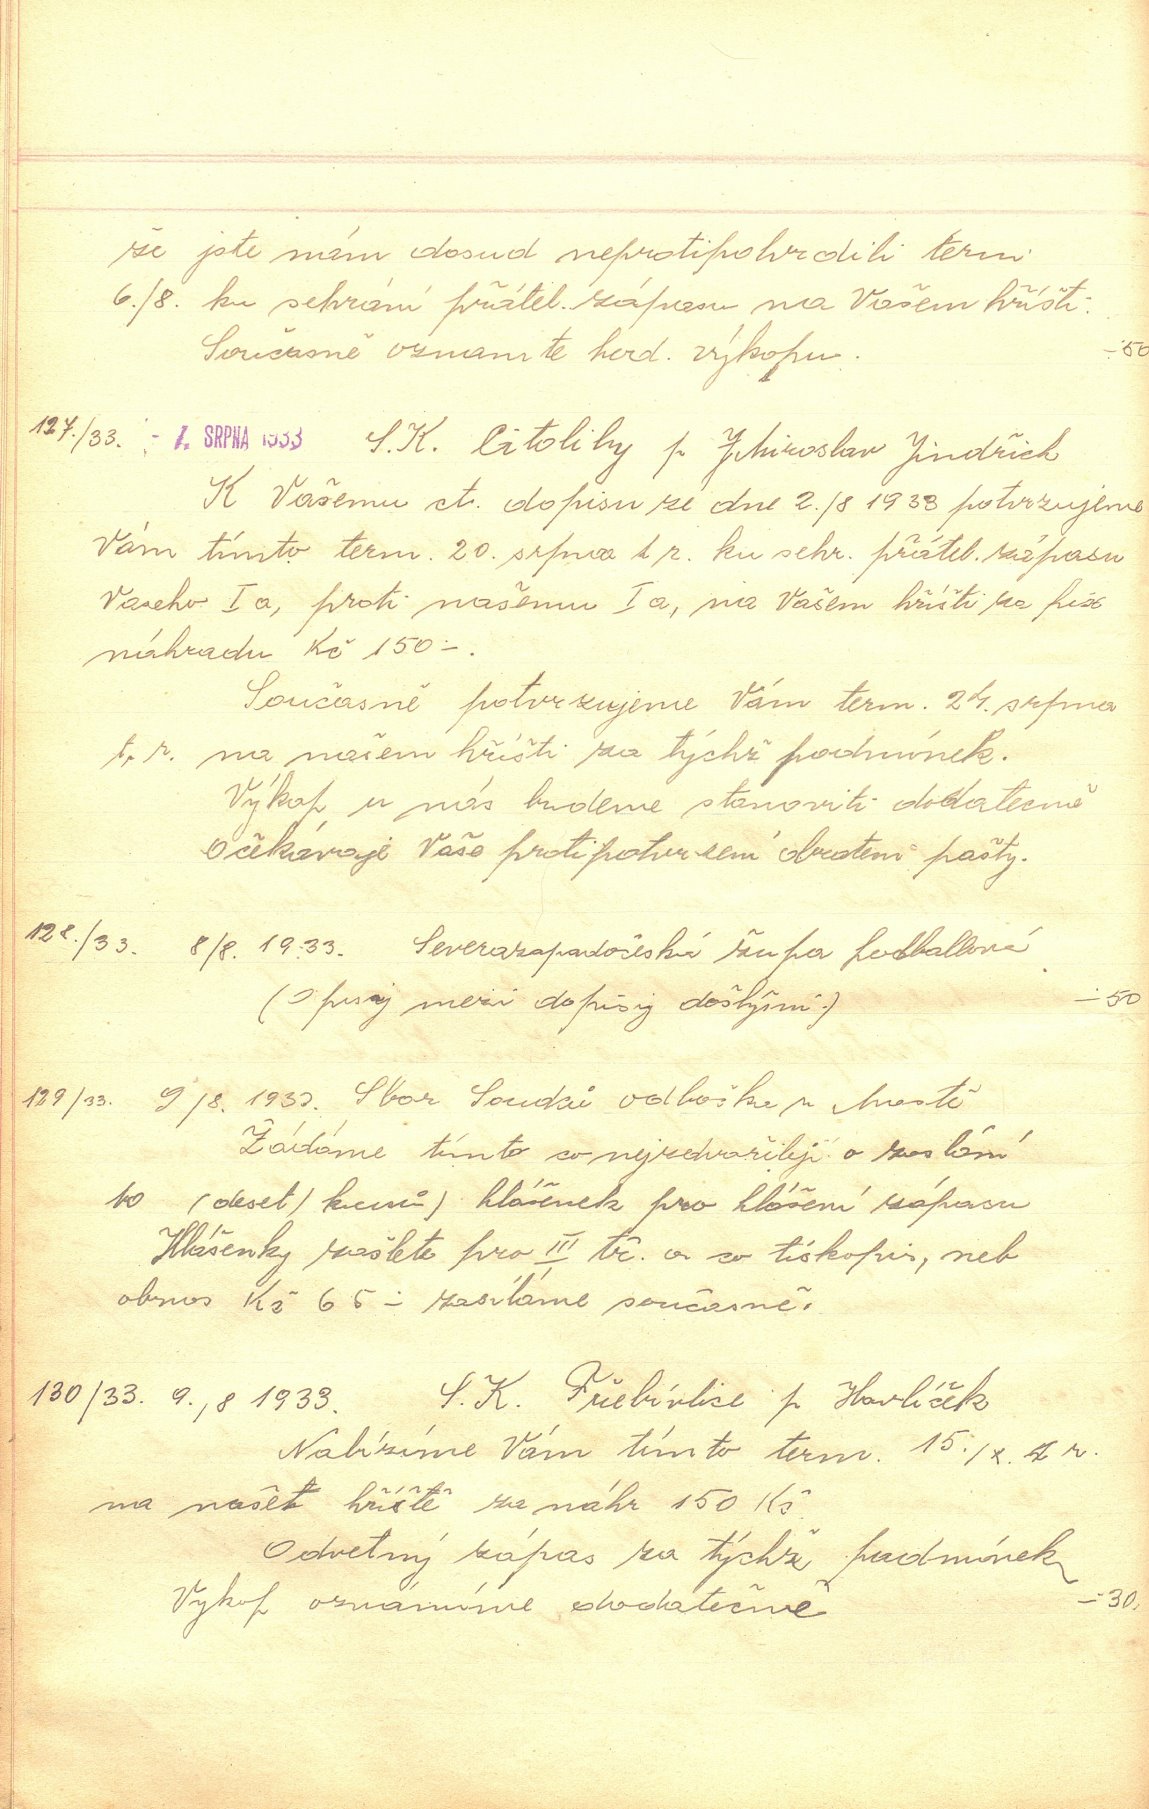 že jste nám dosud neprotipotvrdili term.
6./8. ku sehrání přátel. zápasu na Vašem hřišti.
Současně oznamte hod. výkopu. -50
127./33. - 7. SRPNA 1933 S.K. Citoliby p. Miroslav Jindřich
K Vašemu ct. dopisu ze dne 2./8 1933 potvrzujeme
Vám tímto term. 20. srpna t r. ku sehr. přátel. zápasu
Vaseho Ia, proti našemu Ia, na Vašem hřišti za fix
náhradu Kč 150-.
Současně potvrzujeme Vám term. 27. srpna
t. r. na našem hřišti za týchž podmínek.
Výkop u nás budeme stanoviti dodatecně
Očekávaje Vaše protipotvrzení obratem pošty.
128./33. 8/8. 1933. Severozapadočeská župa footballová
(Opisy mezi dopisy došlými.) -50
129/33. 9/8. 1933. Sbor Soudců odbočka v Mostě
Žádáme tímto co nejzdvořileji o zaslání
10 (deset) kusů) hlášenek pro hlášení zápasu
Hlášenky zašlete pro III tř. a co tiskopis, neb
obnos Kč 65- zasíláme současně.
130/33. 9.,8 1933. S.K. Třebívlice p Havlíček
Nabízíme Vám tímto term. 15./X. t r.
na našet hřiště za náhr 150 Kč.
Odvetný zápas za týchž podmínek
Vykop oznámíme dodatečně -30.